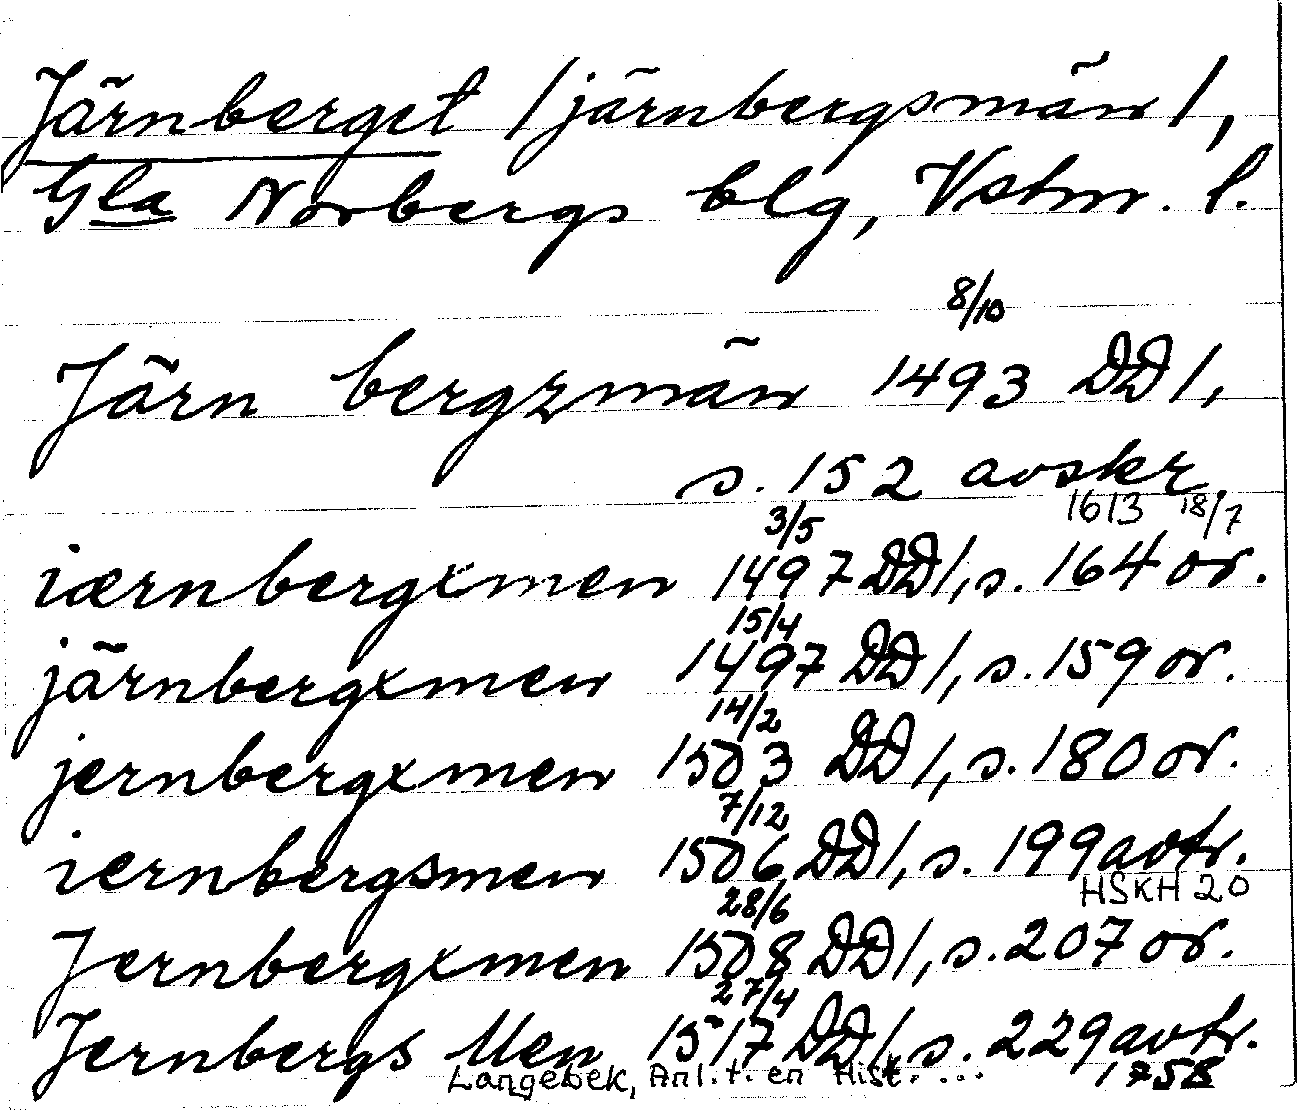 Järnberget /järnbergsmän/,
Gla Norbergs blg, Vstm. l.
8/10
Järn bergzmän 1493 DD 1,
s. 152 avskr.
1613 18/7
3/5
iærnbergxmen 1497 DD 1, s. 164 or.
15/4
järnbergxmen 1497 DD 1, s. 159 or.
14/2
jernbergxmen 1503 DD 1, s. 180 or.
7/12
iernbergsmen 1506 DD 1, s. 199 avtr.
HSKH 20
28/6
Jernbergxmen 1508 DD 1, s. 207 or.
27/4
Jernbergs Men 1517 DD 1, s. 229 avtr.
Langebek, Anl. t. en Hist. ... 1758